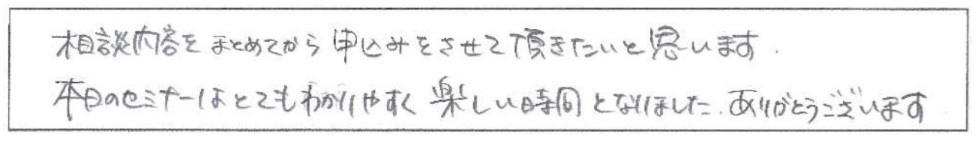 相談内容をまとめてから申込みをさせて頂きたいと思います.
本日のセミナーはとてもわかりやすく楽しい時間となりました.ありがとうございます